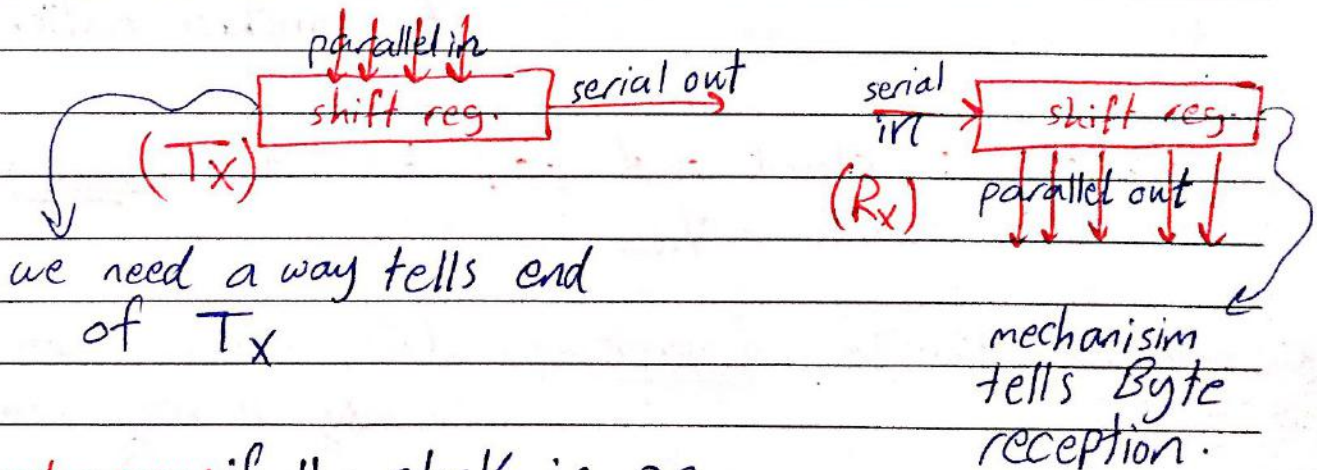 parallel in
shift reg.
serial out
(Tx)
serial
in
shift reg.
(Rx)
parallel out
we need a way tells end
of Tx
mechanisim
tells Byte
reception.
if the clock is